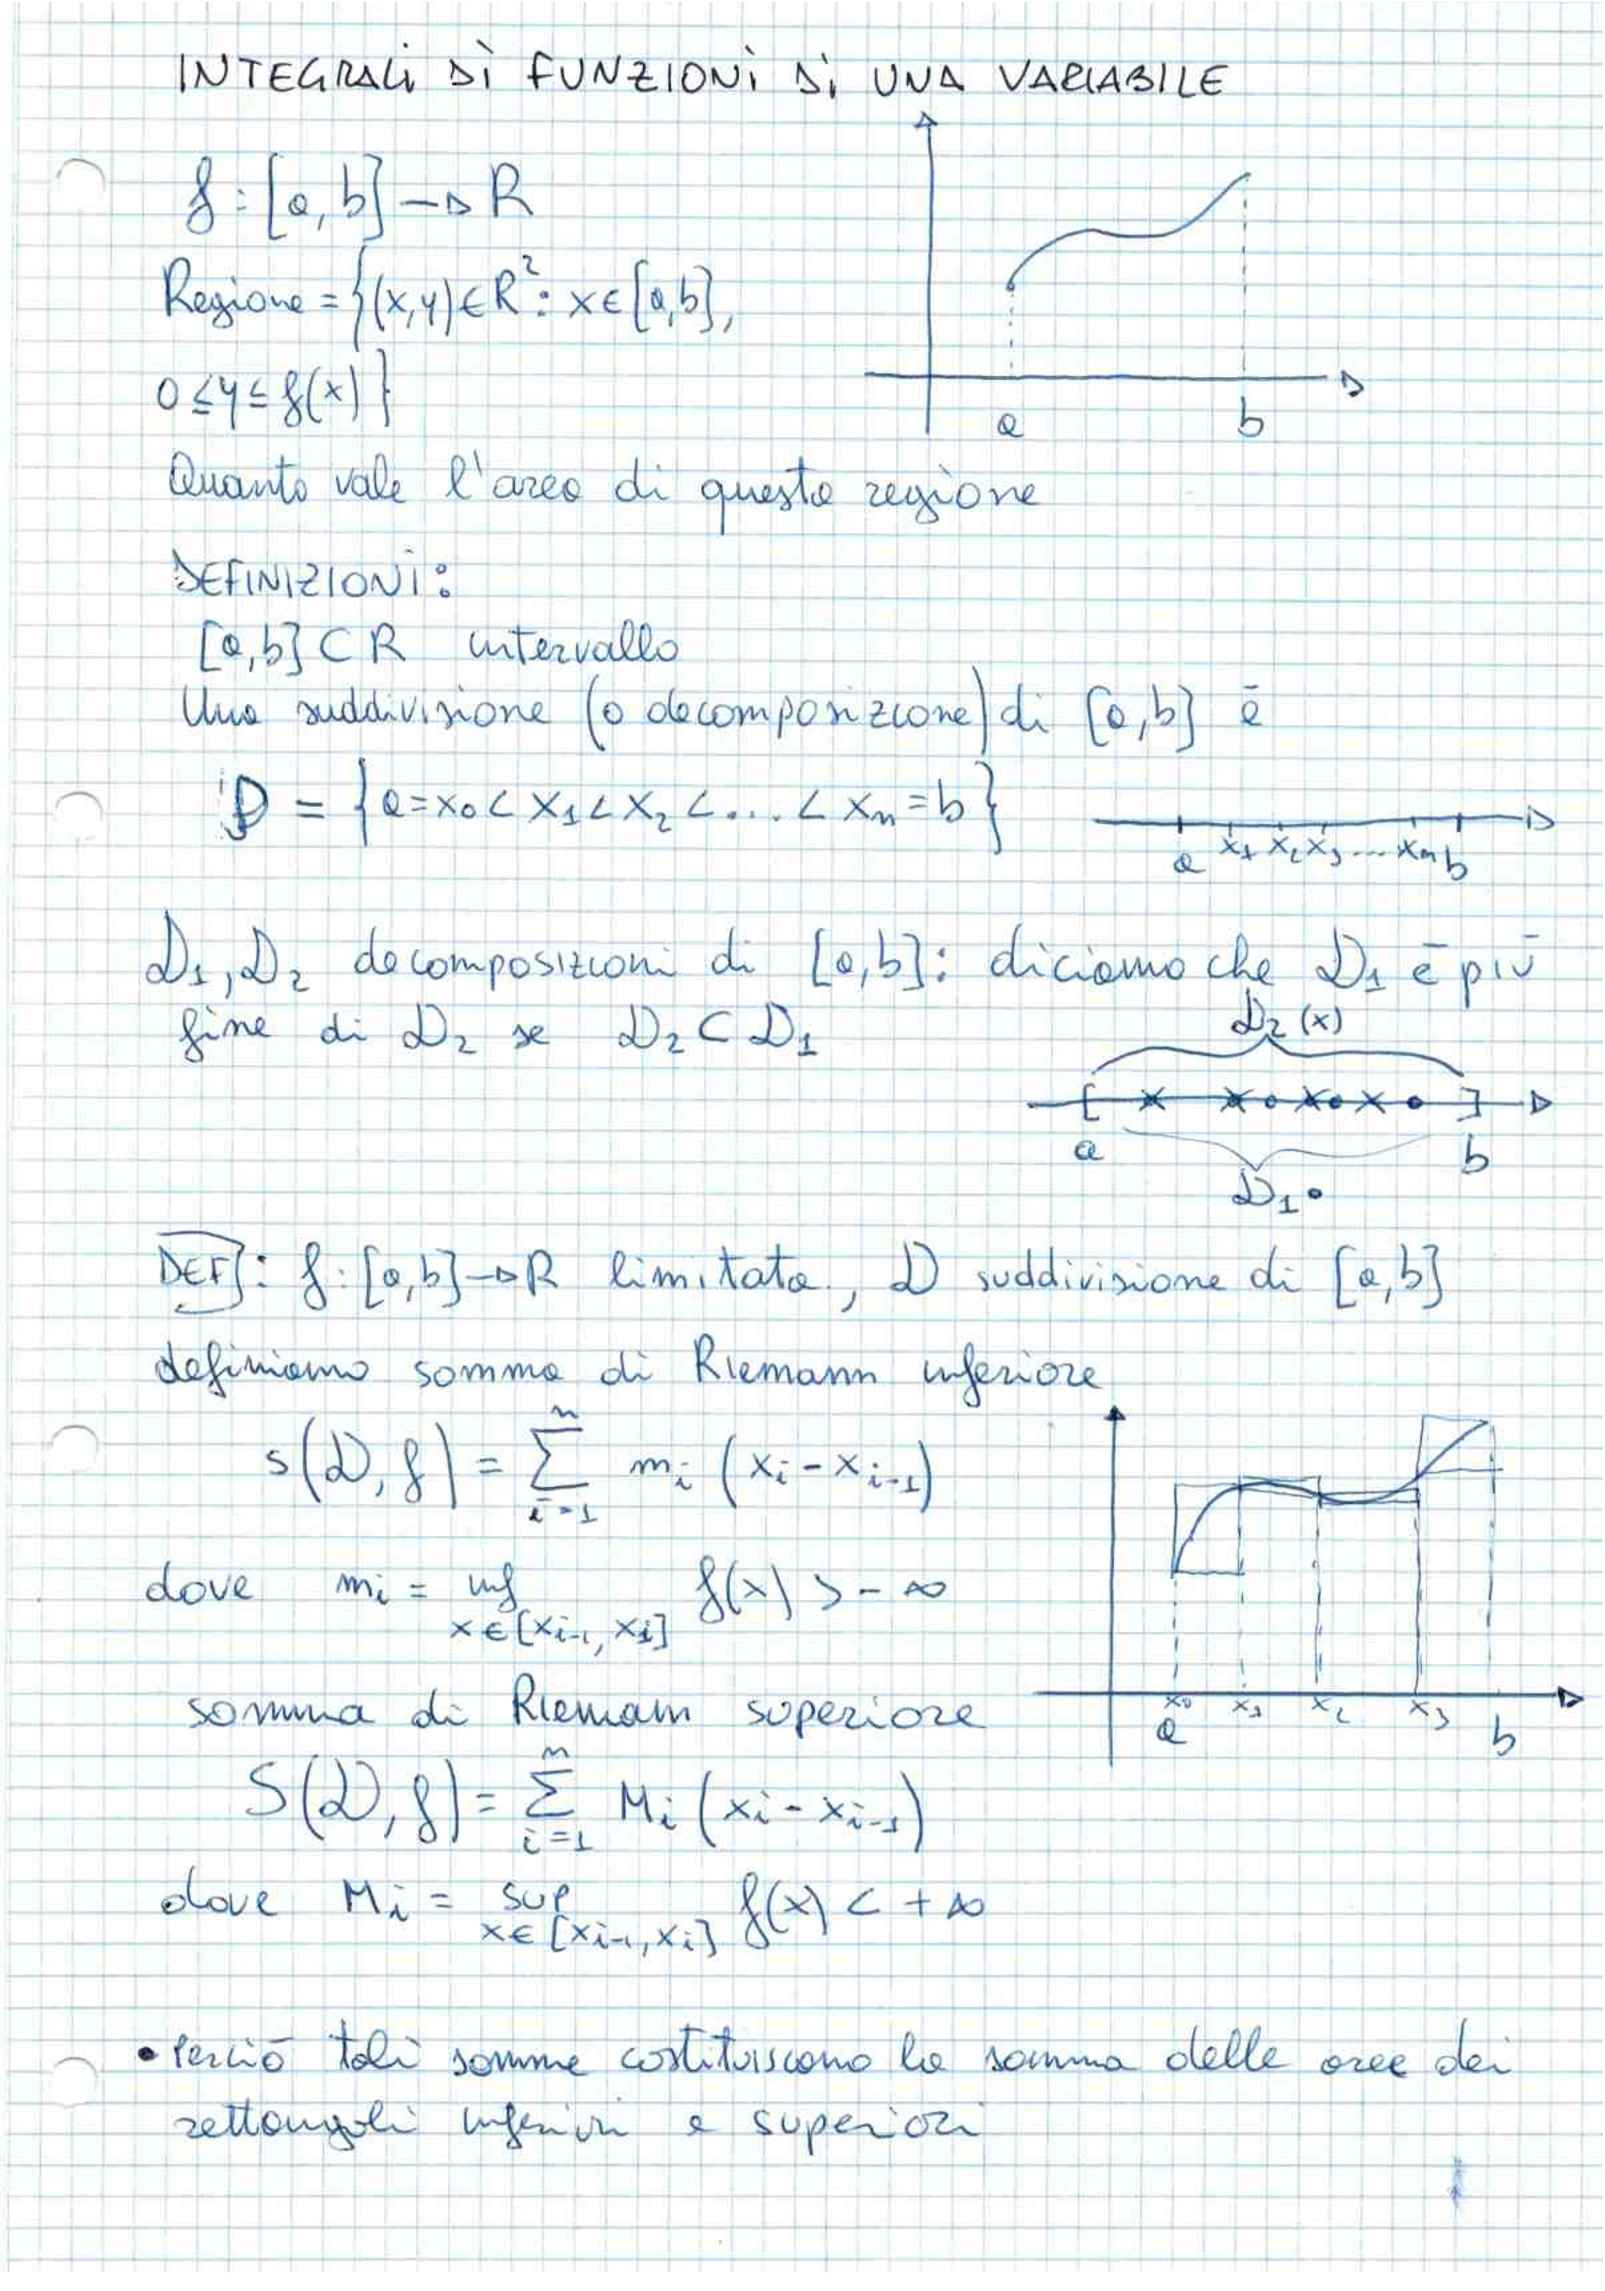 INTEGRALI DI FUNZIONI DI UNA VARIABILE
f: [a,b] → R
Regione = {(x,y) ∈ R²: x ∈ [a,b],
0 ≤ y ≤ f(x)}
a b
Quanto vale l'area di questa regione
DEFINIZIONI:
[a,b] ⊂ R intervallo
Una suddivisione (o decomposizione) di [a,b] è
D = {a = x₀ < x₁ < x₂ < ... < xₙ = b}
a x₁ x₂ x₃ .... xₙ b
D₁, D₂ decomposizioni di [a,b]: diciamo che D₁ è più
fine di D₂ se D₂ ⊂ D₁
D₂ (x)
a b
D₁ •
DEF: f: [a,b] → R limitata, D suddivisione di [a,b]
definiamo somma di Riemann inferiore
s(D, f) = ∑ᵢ₌₁ⁿ mᵢ (xᵢ - xᵢ₋₁)
dove mᵢ = inf x∈[xᵢ₋₁, xᵢ] f(x) > - ∞
x₀ x₁ x₂ x₃
a b
somma di Riemann superiore
S(D, f) = ∑ᵢ₌₁ⁿ Mᵢ (xᵢ - xᵢ₋₁)
dove Mᵢ = sup x∈[xᵢ₋₁, xᵢ] f(x) < + ∞
• Perciò tali somme costituiscono la somma delle aree dei
rettangoli inferiori e superiori